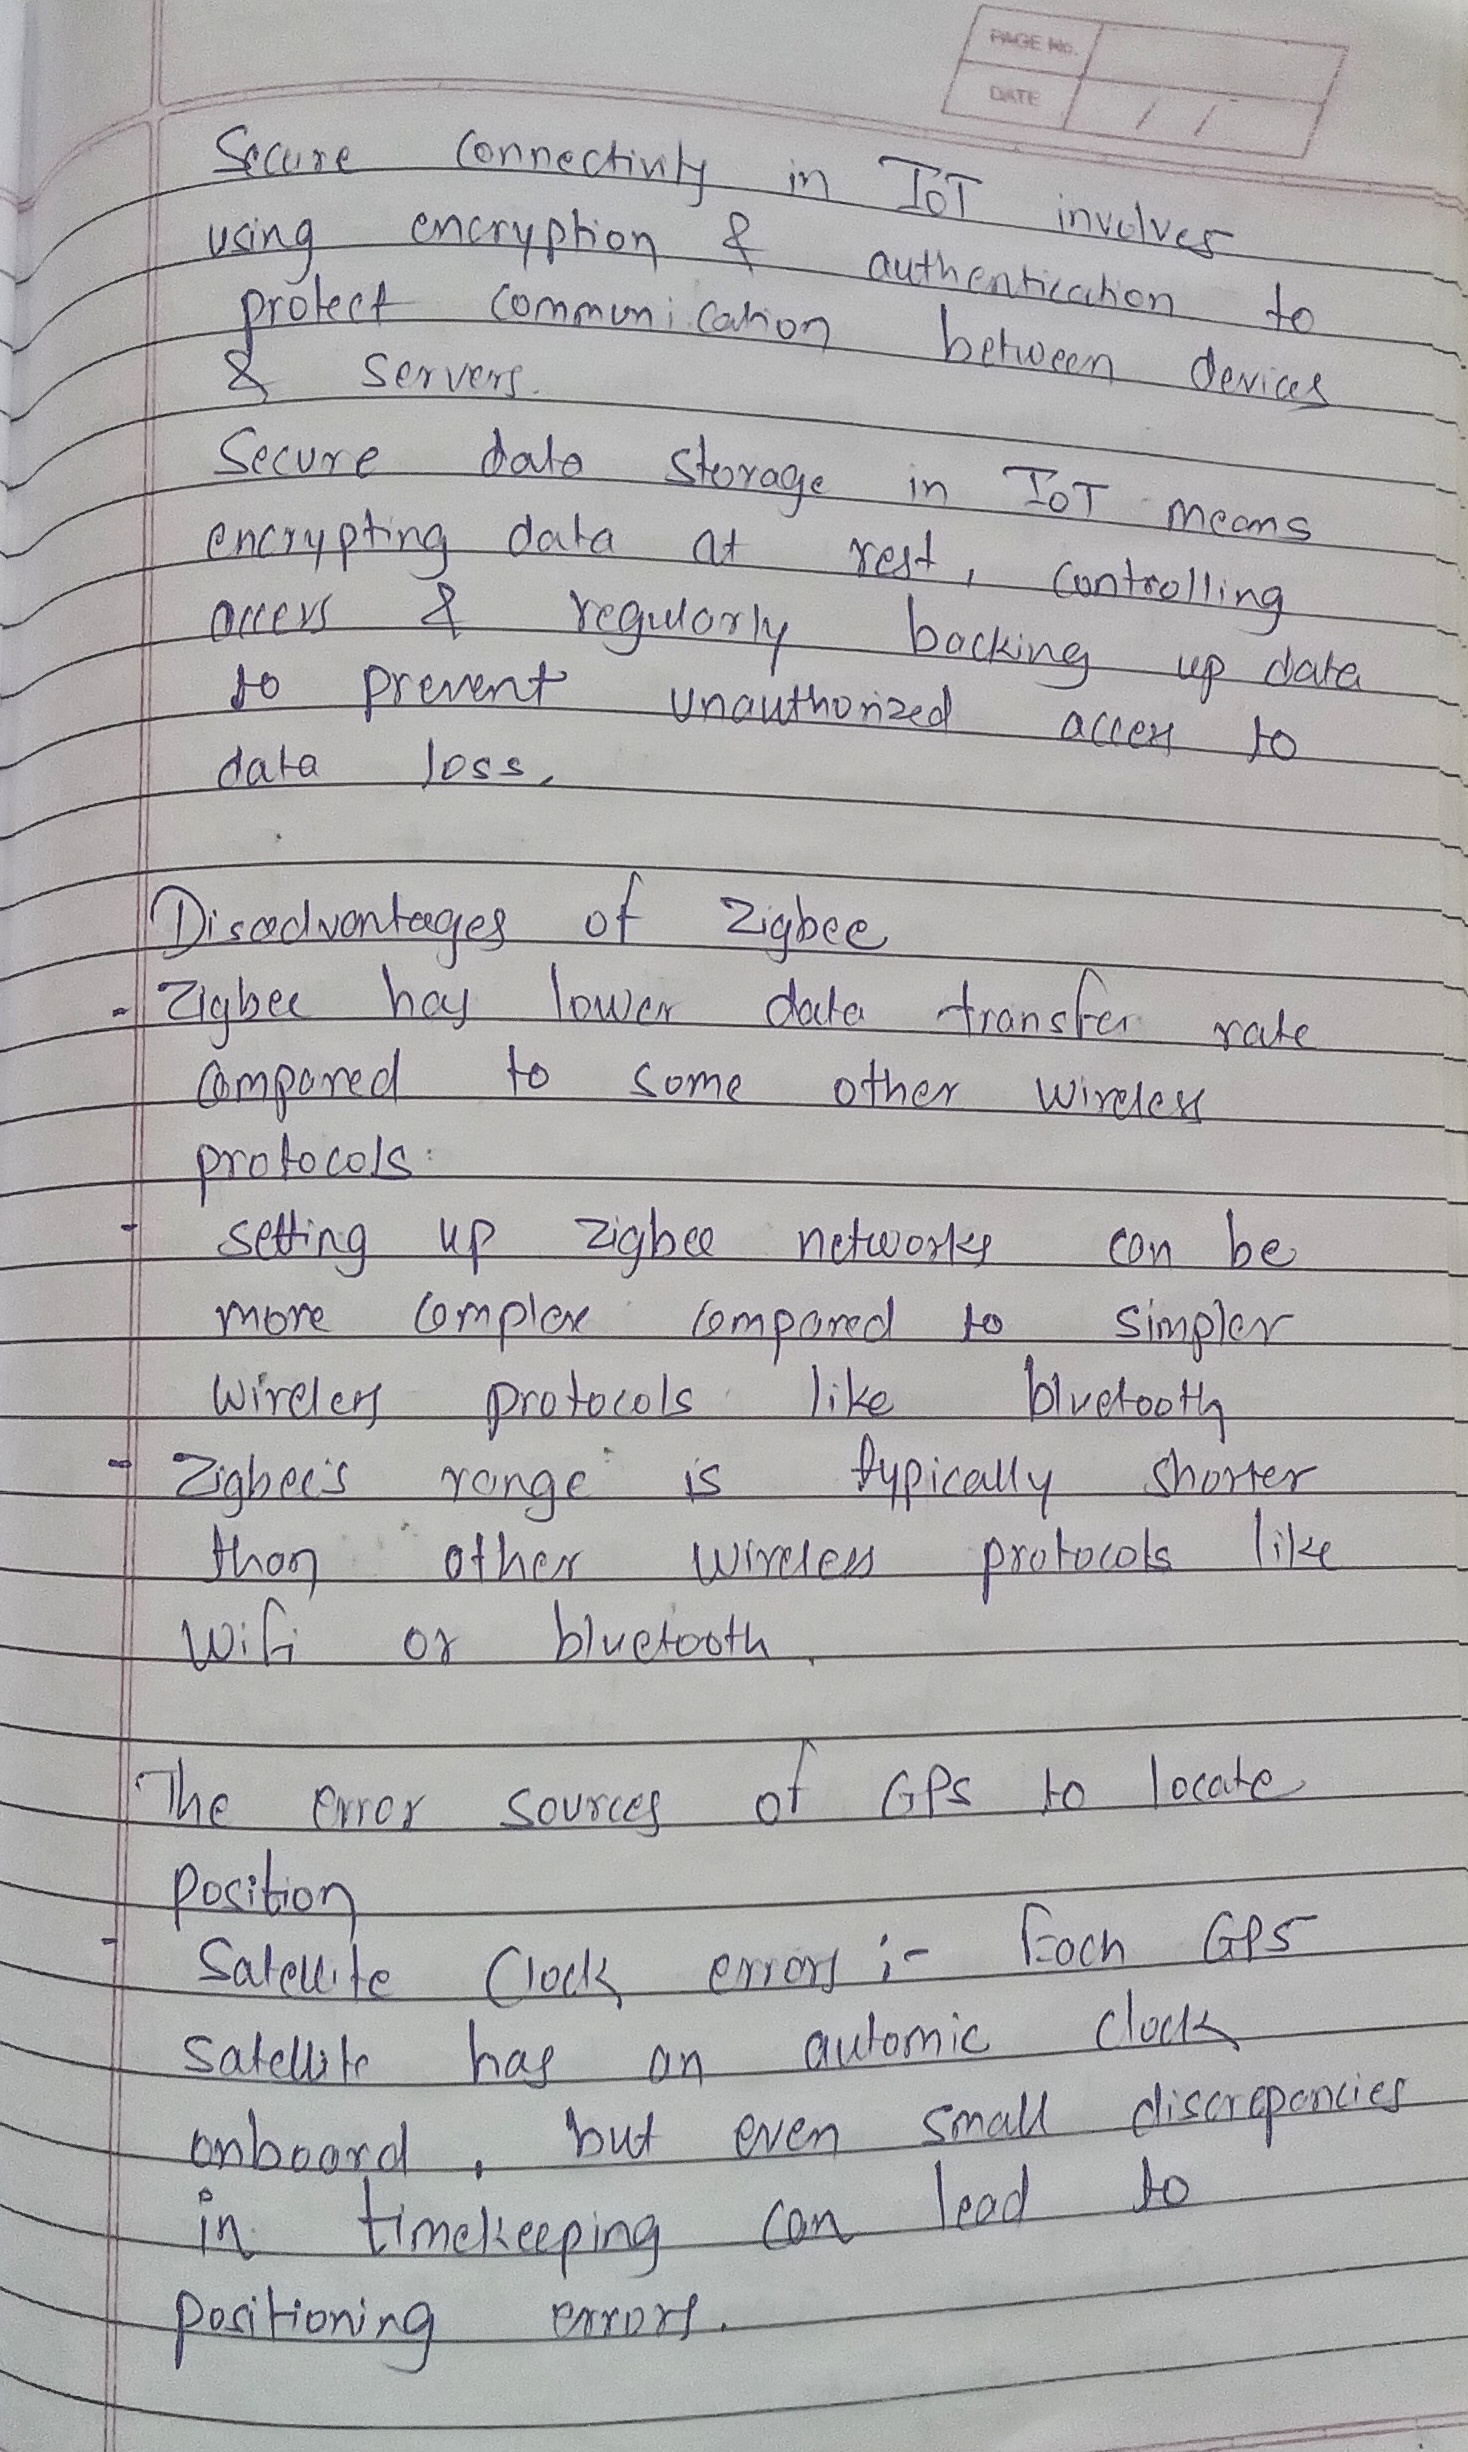 PAGE No.
DATE / /
Secure connectivity in IoT involves
using encryption & authentication to
protect communication between devices
& servers.
Secure data storage in IoT means
encrypting data at rest, controlling
access & regularly backing up data
to prevent unauthorized access to
data loss.
Disadvantages of Zigbee
- Zigbee has lower data transfer rate
compared to some other wireless
protocols.
- setting up zigbee networks can be
more complex compared to simpler
wireless protocols like bluetooth
- Zigbee's range is typically shorter
than other wireless protocols like
Wifi or bluetooth.
The error sources of GPS to locate
position
- Satellite Clock errors :- Each GPS
satellite has an automic clock
onboard, but even small discrepancies
in timekeeping can lead to
positioning errors.